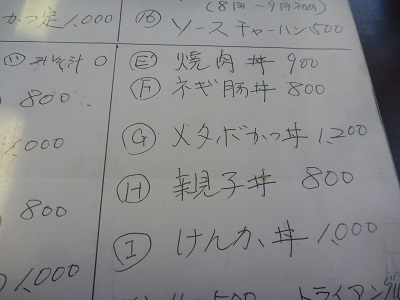 (8月〜9月初旬)
かつ定 1,000
⑯ ソースチャーハン 500
Ⓔ 焼肉丼 900
800
Ⓕ ネギ豚丼 800
,000
Ⓖ メタボかつ丼 1,200
800
Ⓗ 親子丼 800
1,000
Ⓘ けんか丼 1,000
500 トライアングル